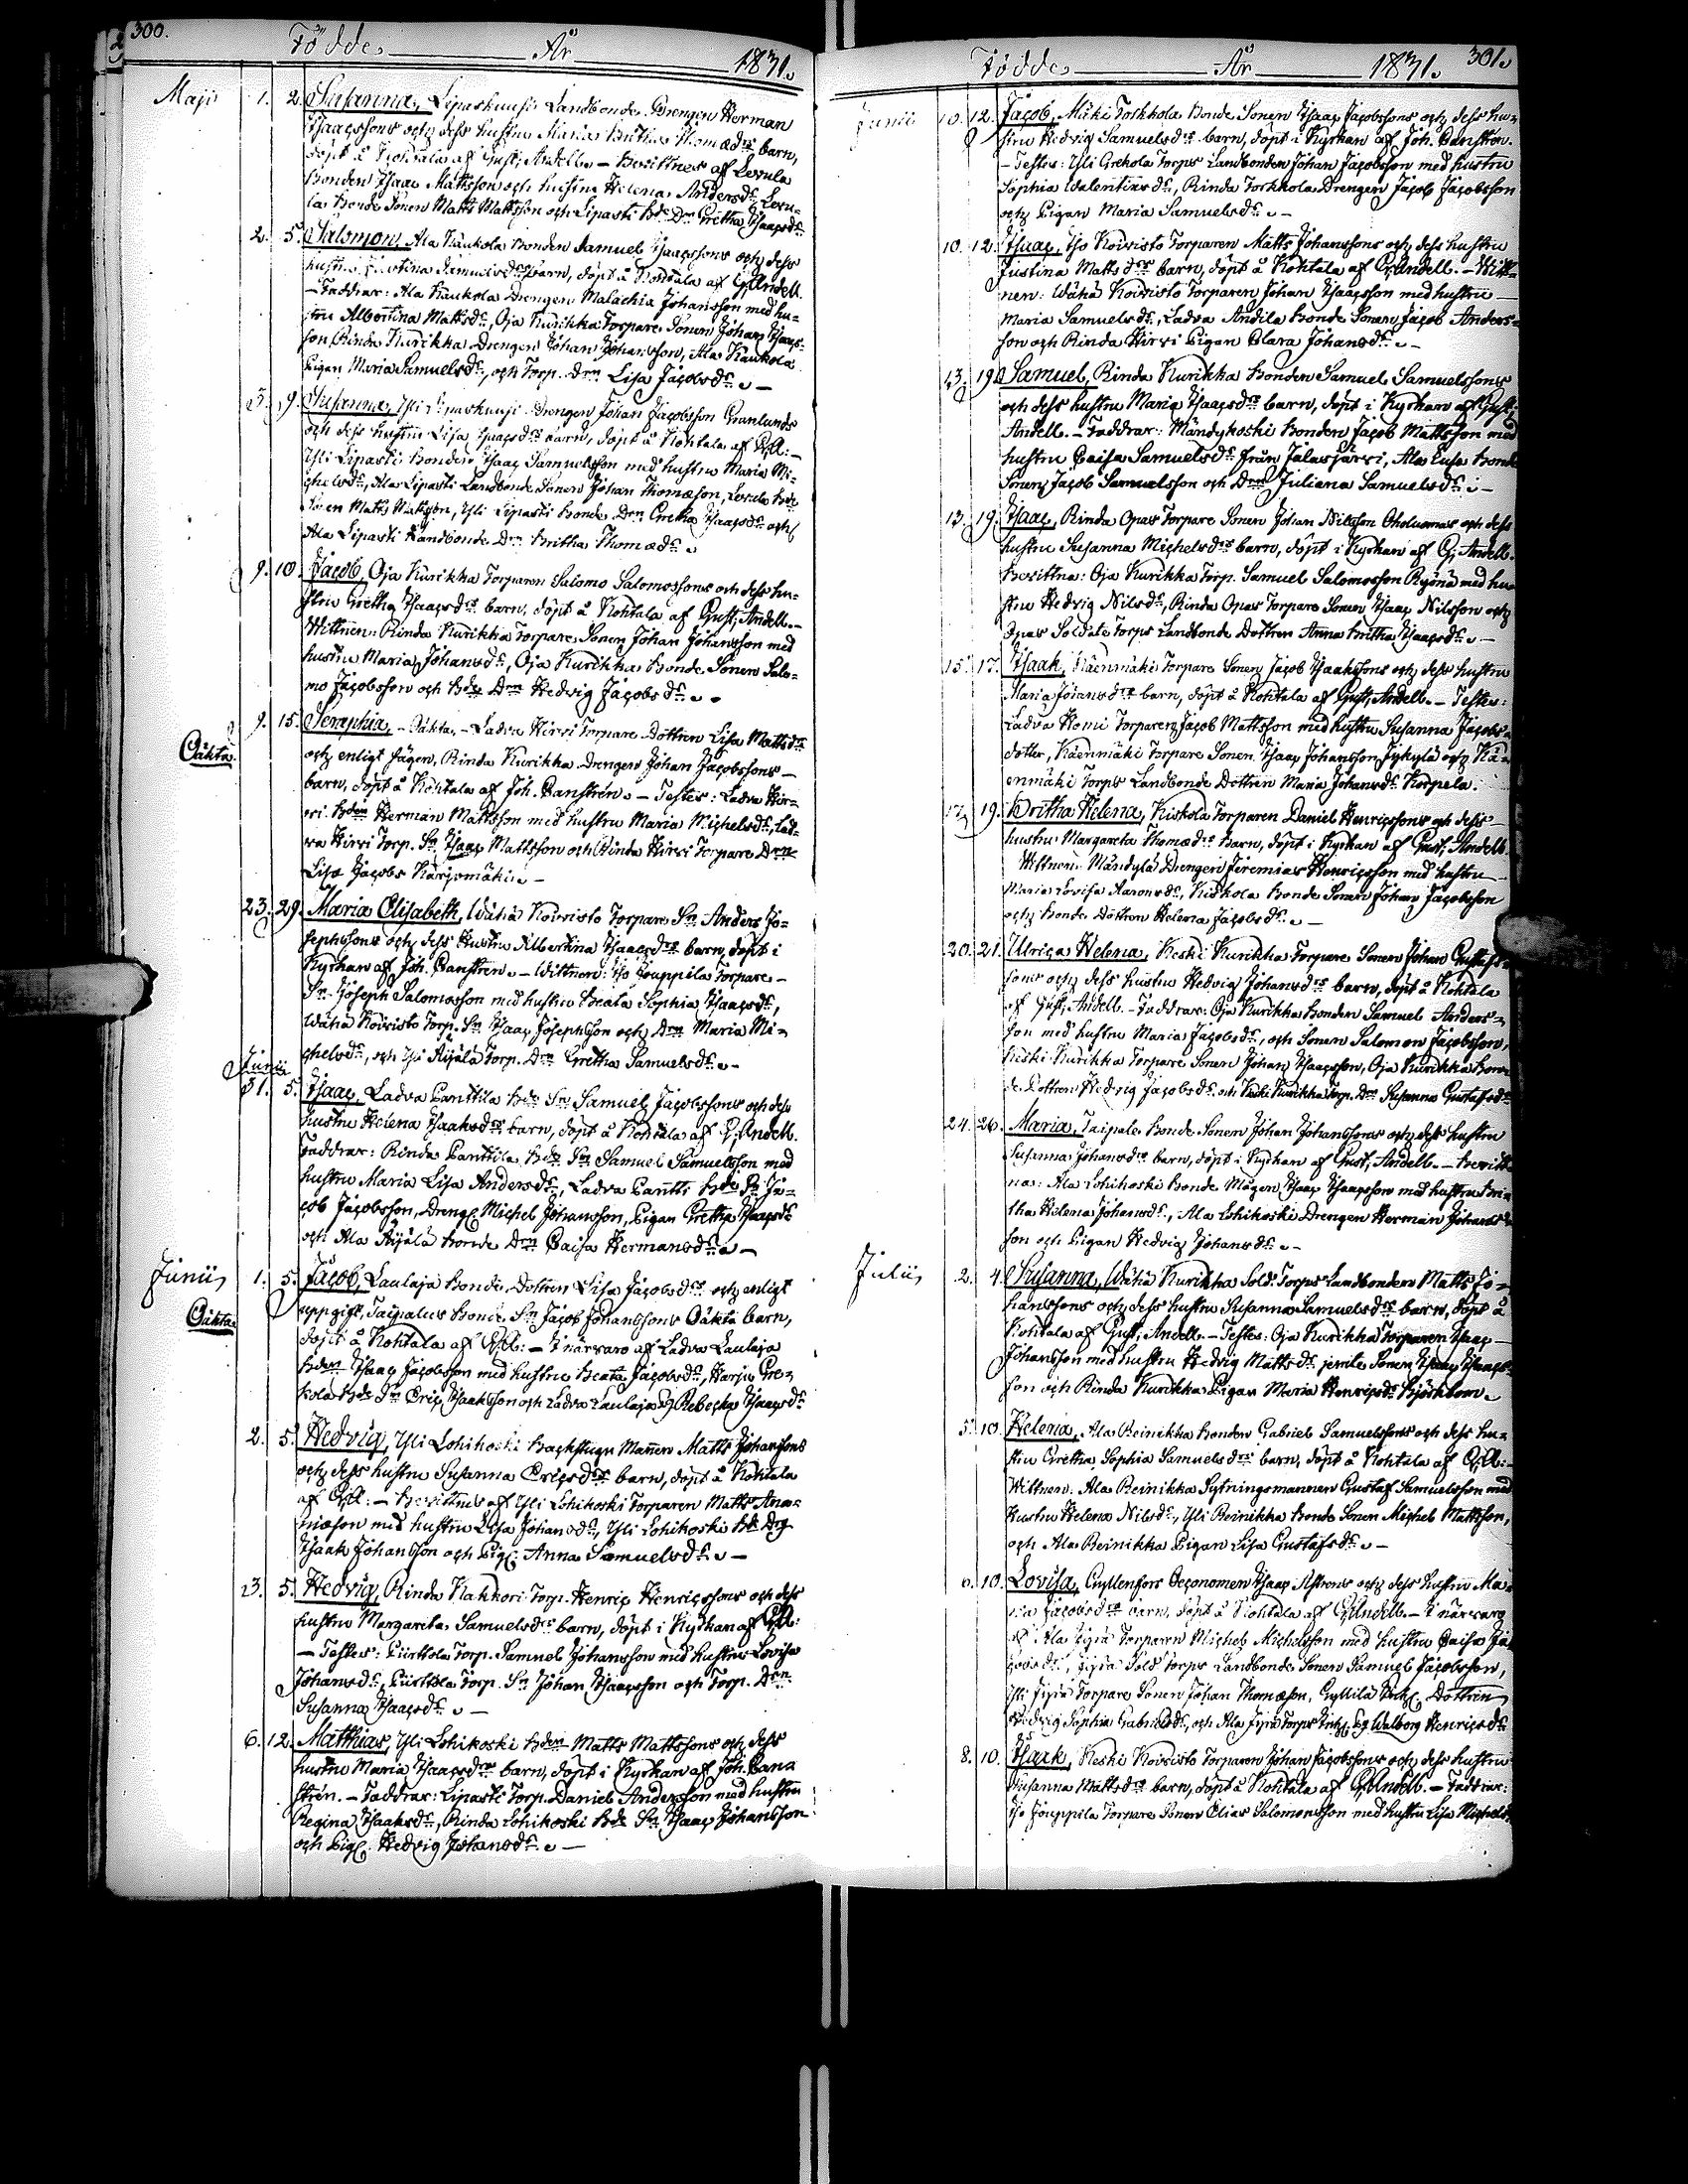 300.
Födde År 1831.
Maji 1. 2. Susanna, Lipaskuusi Landbonde Drengen Herman
Isaacssons och dess hustru Maria Britha Thomædrs barn,
döpt å Kohtala af Gust. Andell. – Bevittnes af Levula
Bonden Isaac Mattsson och hustru Helena Andersdr, Levu-
la Bonde Sonen Matts Mattsson och Lipasti Bde Drn Gretha Isaacsdr
2. 5. Salomon, Ala Kaukola Bonden Samuel Isaacssons och dess
hustru Justina Samuelsdrs barn, döpt å Kohtala af G. Andell.
– Faddrar: Ala Kaukola Drengen Malachia Johansson med hu-
stru Albertina Mattsdr, Oja Kurikka Torpare Sonen Johan Isaacs-
son, Rinda Kurikka Drengen Johan Johansson, Ala Kaukola
Pigan Maria Samuelsdr, och Torp. Drn Lisa Jacobsdr. –
3. 9. Susanna, Yli Lipaskuusi Drengen Johan Jacobsson Granlunds
och dess hustru Lisa Isaacsdrs barn, döpt å Kohtala af GA: –
Yli Lipasti Bonden Isaac Samuelsson med hustru Maria Mi-
chelsdr, Ala Lipasti Landbonde Sonen Johan Thomæson, Levula Bde
Sonen Matts Mattsson, Yli Lipasti Bonde Drn Gretha Isaacsdr och
Ala Lipasti Landbonde Drn Britha Thomædr.
9. 10. Jacob, Oja Kurikka Torparen Salomo Salomossons och dess hu-
stru Gretha Isaacsdrs barn, döpt å Kohtala af Gust. Andell. –
Wittnen: Rinda Kurikka Torpare Sonen Johan Johansson med
hustru Maria Johansdr, Oja Kurikka Bonde Sonen Salo-
mo Jacobsson och Bde Drn Hedvig Jacobsdr.
Oäkta.
9. 15. Seraphia, – Oäkta, – Ladva Hirvi Torpare Dottren Lisa Mattsdrs
och enligt sägen, Rinda Kurikka Drengen Johan Jacobssons –
barn, döpt å Kohtala af Joh. Canstrén. – Testes: Ladva Hir-
vi Bden Herman Mattsson med hustru Maria Michelsdr, Lad-
va Hirvi Torp. Sn Isaac Mattsson och Rinda Hirvi Torpare Drn
Lisa Jacobs Karjomäki. –
23. 29. Maria Elisabeth, Wähä Koivisto Torpare Sn Anders Jo-
sephssons och dess Hustru Albertina Isaacsdrs barn, döpt i
Kyrkan af Joh. Canstren. – Wittnen: Iso Jouppila Torpare –
Sn Joseph Salomosson med hustru Beata Sophia Isaacsdr,
Wähä Koivisto Torp. Sn Isaac Josephsson och Drn Maria Mi-
chelsdr, och Yli Äijälä Torp. Drn Gretha Samuelsdr. –
Junii
31. 5. Isaac, Ladva Panttila Bde Sn Samuel Jacobssons och dess
hustru Helena Isaaksdrs barn, döpt å Kohtala af G. Andell.
Faddrar: Rinda Panttila Bde Sn Samuel Samuelsson med
hustru Maria Lisa Andersdr, Ladva Pantti Bde Sn Ja-
cob Jacobsson, Dreng. Michel Johansson, Pigan Gretha Isaacsdr
och Ala Äijälä Bonde Drn Caisa Hermansdr. –
Junii 1. 5. Jacob, Laulaja Bonde Dottren Lisa Jacobsdrs och enligt
Oäkta.
uppgift, Taipalus Bonde Sn Jacob Johanssons Oäkta barn,
döpt å Kohtala af GA: – I närvaro af Ladva Laulaja
Bden Isaac Jacobsson med hustru Beata Jacobsdr, Harju Gre-
kola Bde Sn Eric Isaaksson och Ladva Laulaja Pg Rebecka Isaacsdr
2. 5. Hedvig, Yli Lohikoski Backstugu Mannen Matts Johanssons
och dess hustru Susanna Ericsdrs barn, döpt å Kohtala
af GA: – Bevittnes af Yli Lohikoski Torparen Matts Ana-
niæson med hustru Lisa Johansdr, Yli Lohikoski Bde Drg
Isaak Johansson och Pig. Anna Samuelsdr. –
23. 5. Hedvig, Rinda Nahkori Torp. Henric Henricssons och dess
hustru Margareta Samuelsdrs barn, döpt i Kyrkan af GA:
– Testes: Piirttola Torp. Samuel Johansson med hustru Lovisa
Johansdr, Piirttola Torp. Sn Johan Isaacsson och Torp. Drn
Susanna Isaacsdr. –
6. 12. Matthias, Yli Lohikoski Bden Matts Mattssons och dess
hustru Maria Isaacsdrs barn, döpt i Kyrkan af Joh. Can-
strén. – Faddrar: Lipasti Torp. Daniel Andersson med hustru
Regina Isaaksdr, Rinda Lohikoski Bde Sn Isaac Johansson
och Pig. Hedvig Johansdr. –
Födde År 1831. 301.
Junii 10. 12. Jacob, Mäki Torkkola Bonde Sonen Isaac Jacobssons och dess hu-
stru Hedvig Samuelsdrs barn, döpt i Kyrkan af Joh. Canstrén.
– Testes: Yli Grekola Torps Landbonden Johan Jacobsson med hustru
Sophia Walentinsdr, Rinda Torkkola Drengen Jacob Jacobsson
och Pigan Maria Samuelsdr. –
10. 12. Isaac, Iso Koivisto Torparen Matts Johanssons och dess hustru
Justina Mattsdrs barn, döpt å Kohtala af G. Andell. – Witt-
nen: Wähä Koivisto Torparen Johan Isaacsson med hustru –
Maria Samuelsdr, Ladva Andila Bonde Sonen Jacob Anders-
son och Rinda Hirvi Pigan Clara Johansdr. –
13. 19. Samuel, Rinda Kurikka Bonden Samuel Samuelssons
och dess hustru Maria Isaacsdrs barn, döpt i Kyrkan af Gust.
Andell. – Faddrar: Mändykoski Bonden Jacob Mattsson med
hustru Caisa Samuelsdr från Jalasjärvi, Ala Luja Bonde
Sonen Jacob Samuelsson och Drn Juliana Samuelsdr. –
13. 19. Isaac, Rinda Opas Torpare Sonen Johan Nilsson Oholuomas och dess
hustru Susanna Michelsdrs barn, döpt i Kyrkan af G. Andell.
Bevittna: Oja Kurikka Torp. Samuel Salomosson Ryönä med hu-
stru Hedvig Nilsdr, Rinda Opas Torpare Sonen Isaac Nilsson och
Opas Soldate Torps Landbonde Dottren Anna Britha Isaacsdr. –
15. 17. Isaak, Käenmäki Torpare Sonen Jacob Isaakssons och dess hustru
Maria Johansdrs barn, döpt å Kohtala af Gust. Andell. – Testes:
Ladva Homi Torparen Jacob Mattsson med hustru Susanna Jacobs-
dotter, Käenmäki Torpare Sonen Isaac Johansson Jykylä och Kä-
enmäki Torps Landbonde Dottren Maria Johansdr Korpela.
17. 19. Britha Helena, Kiskola Torparen Daniel Henricssons och dess –
hustru Margareta Thomædrs barn, döpt i Kyrkan af Gust. Andell
Wittnen: Mändylä Drengen Jeremias Henricsson med hustru –
Maria Lovisa Aaronsdr, Kiskola Bonde Sonen Johan Jacobsson
och Bonde Dottren Helena Jacobsdr. –
20. 21. Ulrica Helena, Keski Kurikka Torpare Sonen Johan Gustafs-
sons och dess hustru Hedvig Johansdrs barn, döpt å Kohtala
af Gust. Andell. – Faddrar: Oja Kurikka Bonden Samuel Anders-
son med hustru Maria Jacobsdr, och Sonen Salomon Jacobsson,
Keski Kurikka Torpare Sonen Johan Isaacsson, Oja Kurikka Bon-
de Dottren Hedvig Jacobsdr och Keski Kurikka Torp. Drn Susanna Gustafsdr
24. 26. Maria, Taipale Bonde Sonen Johan Johanssons och dess hustru
Susanna Johansdrs barn, döpt i Kyrkan af Gust. Andell. – Bevitt-
na: Ala Lohikoski Bonde Mågen Isaac Isaacsson med hustru Bri-
tha Helena Johansdr, Ala Lohikoski Drengen Herman Johans-
son och Pigan Hedvig Johansdr. –
Julii 2. 4. Susanna, Wähä Kurikka Sold. Torps Landbonden Matts Jo-
hanssons och dess hustru Susanna Samuelsdrs barn, döpt å
Kohtala af Gust. Andell. – Testes: Oja Kurikka Torparen Isaac –
Johansson med hustru Hedvig Mattsdr, jemte Sonen Isaac Isaacs-
son och Rinda Kurikka Pigan Maria Henricsdr Björkbom.
5. 10. Helena, Ala Reinikka Bonden Gabriel Samuelssons och dess hu-
stru Gretha Sophia Samuelsdrs barn, döpt å Kohtala af GA: –
Wittnen: Ala Reinikka Sytningsmannen Gustaf Samuelsson med
Hustru Helena Nilsdr, Yli Reinikka Bonde Sonen Michel Mattsson,
och Ala Reinikka Pigan Lisa Gustafsdr. –
6. 10. Lovisa, Gyllenfors Oeconomen Isaac Astrens och dess hustru Ma-
ria Jacobsdrs barn, döpt å Kohtala af G. Andell. – I närvaro
af Ala Jyrä Torparen Michel Michelsson med hustru Caisa Ja-
cobsdr, Jyrä Sold Torps Landbonde Sonen Samuel Jacobsson,
Yli Jyrä Torpare Sonen Johan Thomæson, Gyllilä Dottren
Hedvig Sophia Gabrielsdr, och Ala Jyrä Torps Pg Walborg Henricsdr
8. 10. Isaak, Keski Koivisto Torparen Johan Jacobssons och dess hustru
Susanna Mattsdrs barn, döpt å Kohtala af G. Andell. – Faddrar:
Iso Jouppila Torpare Sonen Elias Salomonsson med hustru Lisa Michels